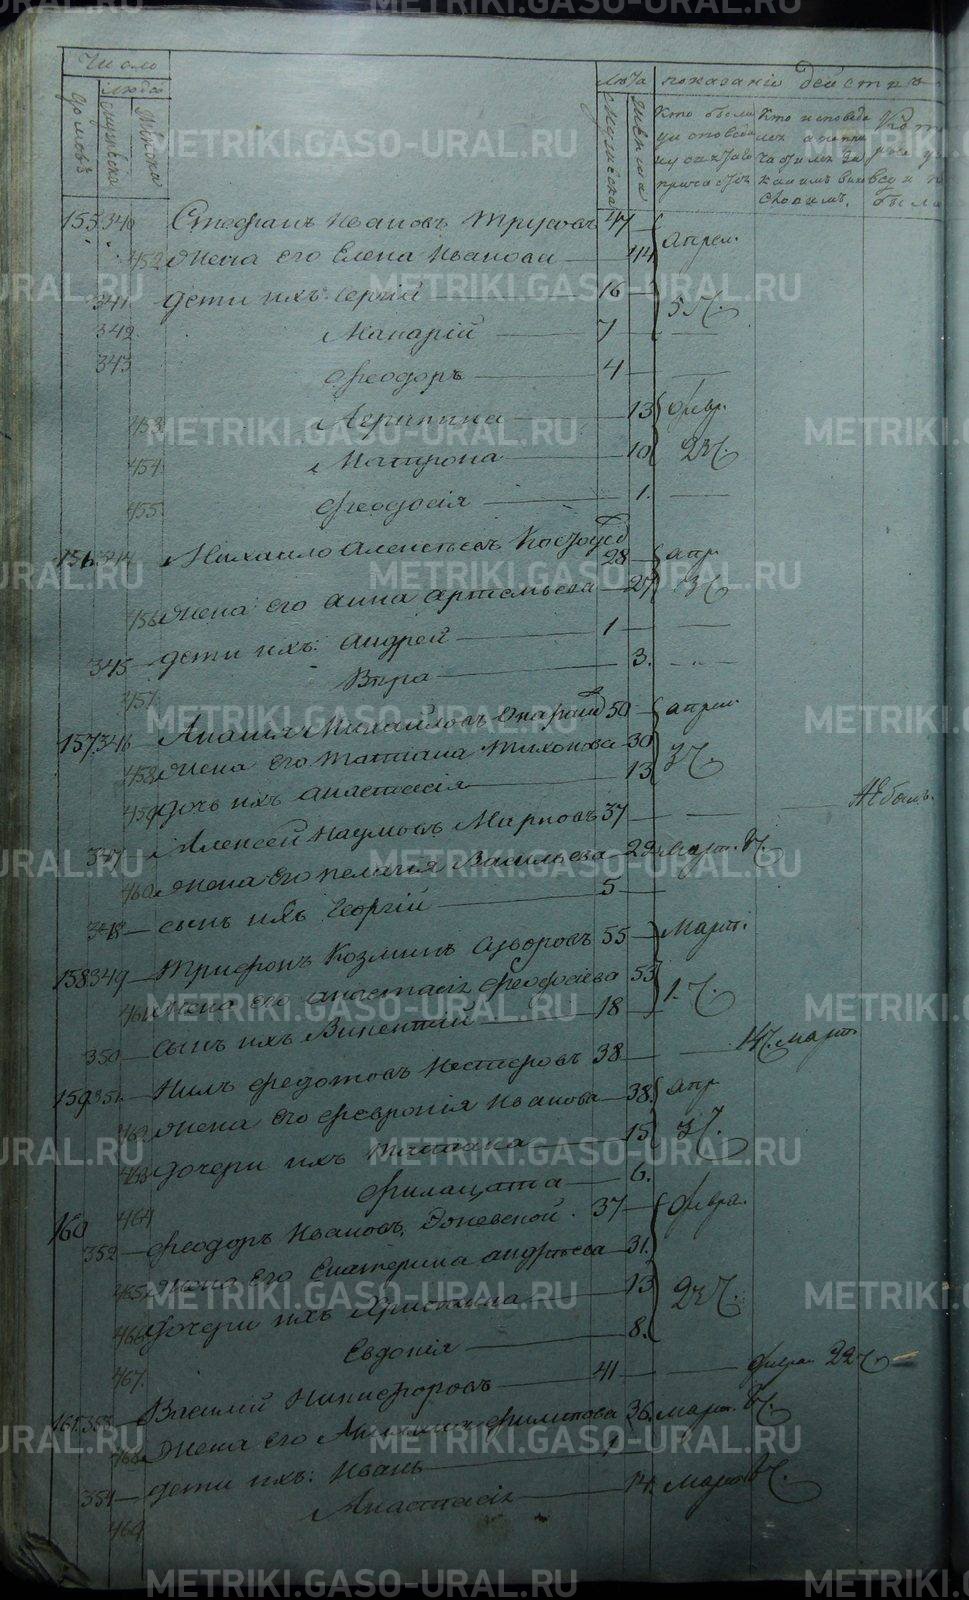 Число
людей
лѣта
показаніе дейстиъ
домовъ
мужеска
женска
мужеска
женска
Кто были
у исповеди
и у святаго
причастія
Кто исповеда
лся а непри
частился за
какимъ вино
словимъ.
были
155. 340 Стефанъ Ивановъ Трусовъ 47 апрел.
452 жена его Елена Иванова 44
341 дети ихъ: Сергій 16 5 Ч.
342 Макарій 7
343 Феодоръ 4
453 Агрипина 13 февр.
454 Матрона 10 23 Ч.
455 Феодосія 1.
156. 344 Михаило Алексеевъ 28 апр
456 жена его Анна Артемьева 27 3 Ч.
345 дети ихъ: Андрей 1
457 Вѣра 3.
157. 346 Ананія Михайловъ 50 апрел.
458 жена его Татиана Тихонова 30 3 Ч.
459 дочь ихъ Анастасія 13
347 Алексей Наумовъ Марковъ 37 Не былъ.
460 жена его Пелагія Васильева 22 март. 8 Ч.
348 сынъ ихъ Георгій 5
158 349 Трифонъ Козминъ Суворовъ 55 март.
461 жена его Анастасія Феодосіева 53 1. Ч.
350 сынъ ихъ Викентій 18
159 351 Нилъ Федотовъ Нестеровъ 38 14 Ч. март
462 жена его Феvронія Иванова 38 апр
463 дочери ихъ Татіана 15 3 Ч.
464 Филицата 6.
160 352 Феодоръ Ивановъ Доневской 37 февра.
465 жена его Екатерина Андреева 31.
466 дочери ихъ Христина 13 22 Ч.
467. Евдокія 8.
161. 353 Василей Никифоровъ 41 феврал 22 Ч.
468 жена его Акилина Филипова 36. март. 8 Ч.
354 дети ихъ: Иванъ 1
469 Анастасія 14. март 8 Ч.
METRIKI.GASO-URAL.RU